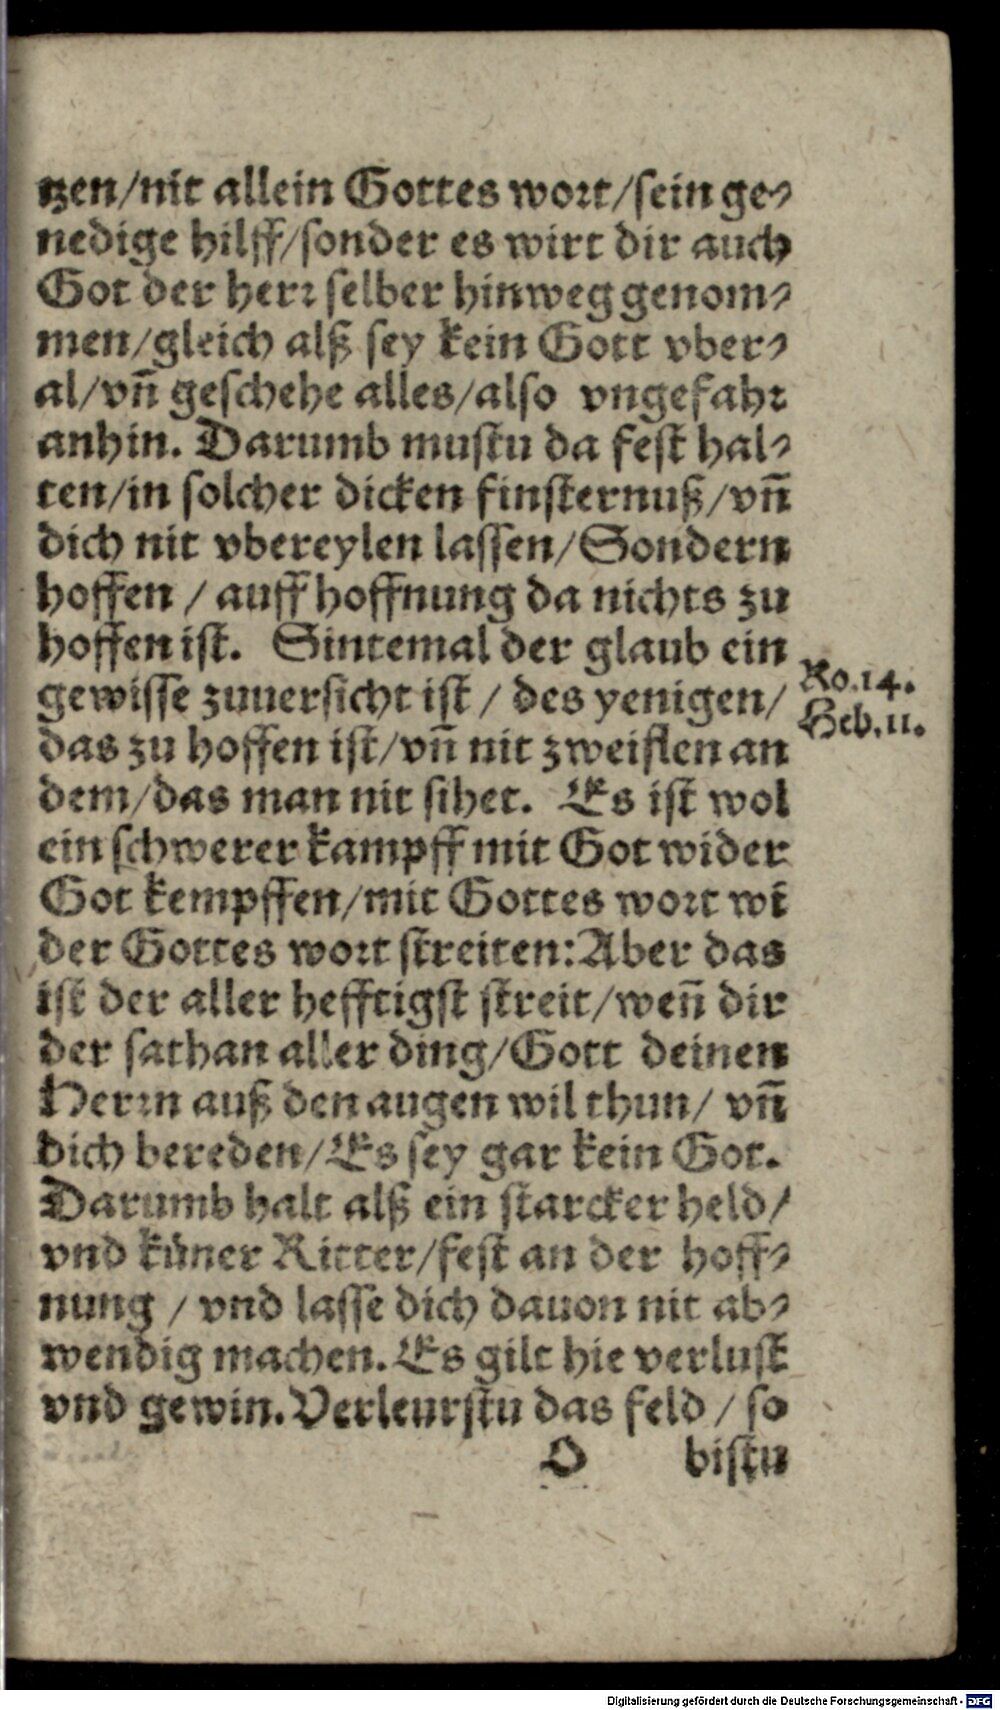 tzen/nit allein Gottes wort/sein ge⸗
nedige hilff/sonder es wirt dir auch
Got der herr selber hinweg genom⸗
men/gleich alß sey kein Gott vber⸗
al/vñ geschehe alles/also vngefahr
anhin. Darumb mustu da fest hal⸗
ten/in solcher dicken finsternuß/vñ
dich nit vbereylen lassen/Sondern
hoffen / auff hoffnung da nichts zu
hoffen ist. Sintemal der glaub ein
gewisse zuuersicht ist / des yenigen/
Ro.14.
Heb.11.
das zu hoffen ist/vñ nit zweiflen an
dem/das man nit sihet. Es ist wol
ein schwerer kampff mit Got wider
Got kempffen/mit Gottes wort wi
der Gottes wort streiten:Aber das
ist der aller hefftigst streit/weñ dir
der sathan aller ding/Gott deinen
Herrn auß den augen wil thun/ vñ
dich bereden/Es sey gar kein Got.
Darumb halt alß ein starcker held/
vnd kůner Ritter/fest an der hoff⸗
nung / vnd lasse dich dauon nit ab⸗
wendig machen. Es gilt hie verlust
vnd gewin. Verleurstu das feld / so
O bistu
Digitalisierung gefördert durch die Deutsche Forschungsgemeinschaft - DFG